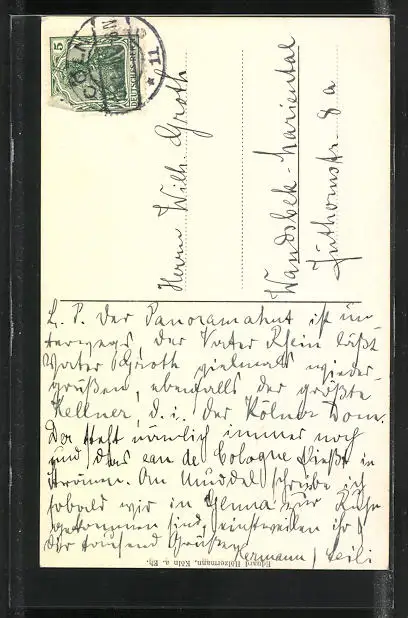 5
DEUTSCHES REICH
CÖLN
* * 11
Herrn Wilh. Groth
Wandsbek-Mariental
Jüthornstr. 8a
L. P. Der Panoramahut ist un
terwegs, der Vater Rhein läßt
Vater Groth vielmals wieder
grüßen, ebenfalls der größte
Kellner, d. i. der Kölner Dom.
Der steht nämlich immer noch
und das eau de Cologne fließt in
Strömen. An schreibe ich
sobald wir in Jenna zur Ruhe
gekommen sind, einstweilen ihr &
Dir tausend Grüße
Hermann / Leili
Eduard Hölzermann, Köln a. Rh.